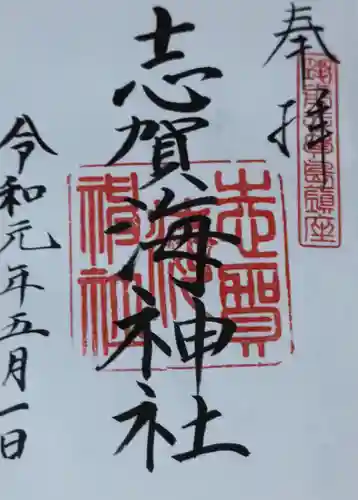 奉拝
志賀海神社
令和元年五月一日
志賀
海
神社